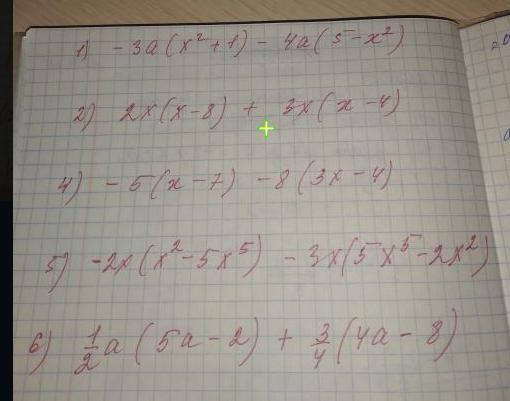 1) -3a(x² + 1) - 4a(5 - x²)
2) 2x(x - 8) + 3x(x - 4)
4) -5(x - 7) - 8(3x - 4)
5) -2x(x² - 5x⁵) - 3x(5x⁵ - 2x²)
6) 1/2 a(5a - 2) + 3/4 (4a - 8)